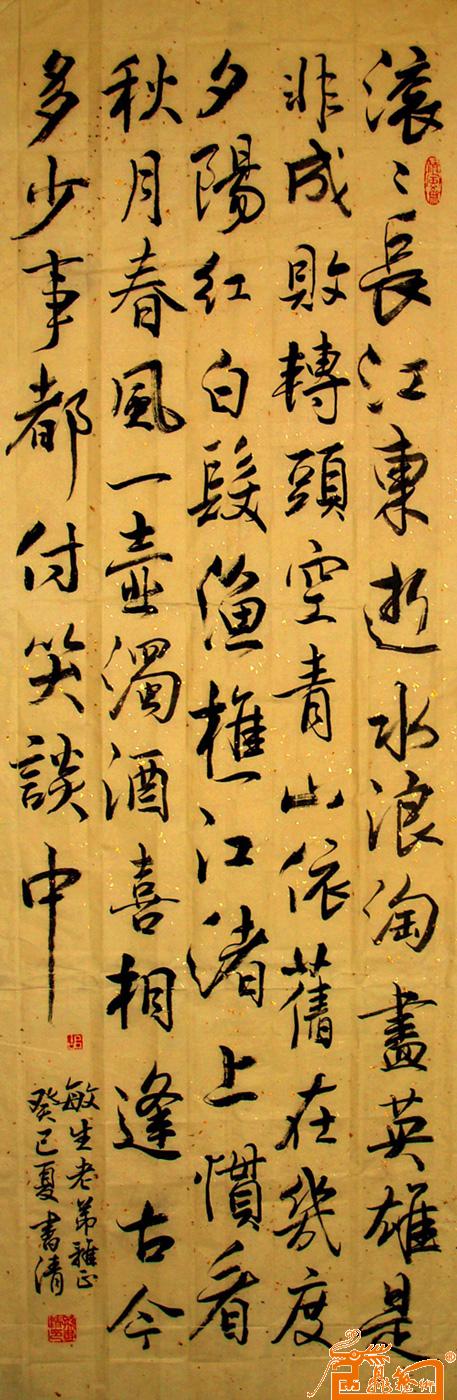 滚〻長江東逝水浪淘盡英雄是
非成敗轉頭空青山依舊在幾度
夕陽紅白髮漁樵江渚上慣看
秋月春風一壺濁酒喜相逢古今
多少事都付笑談中
敏生老弟雅正
癸巳夏書清